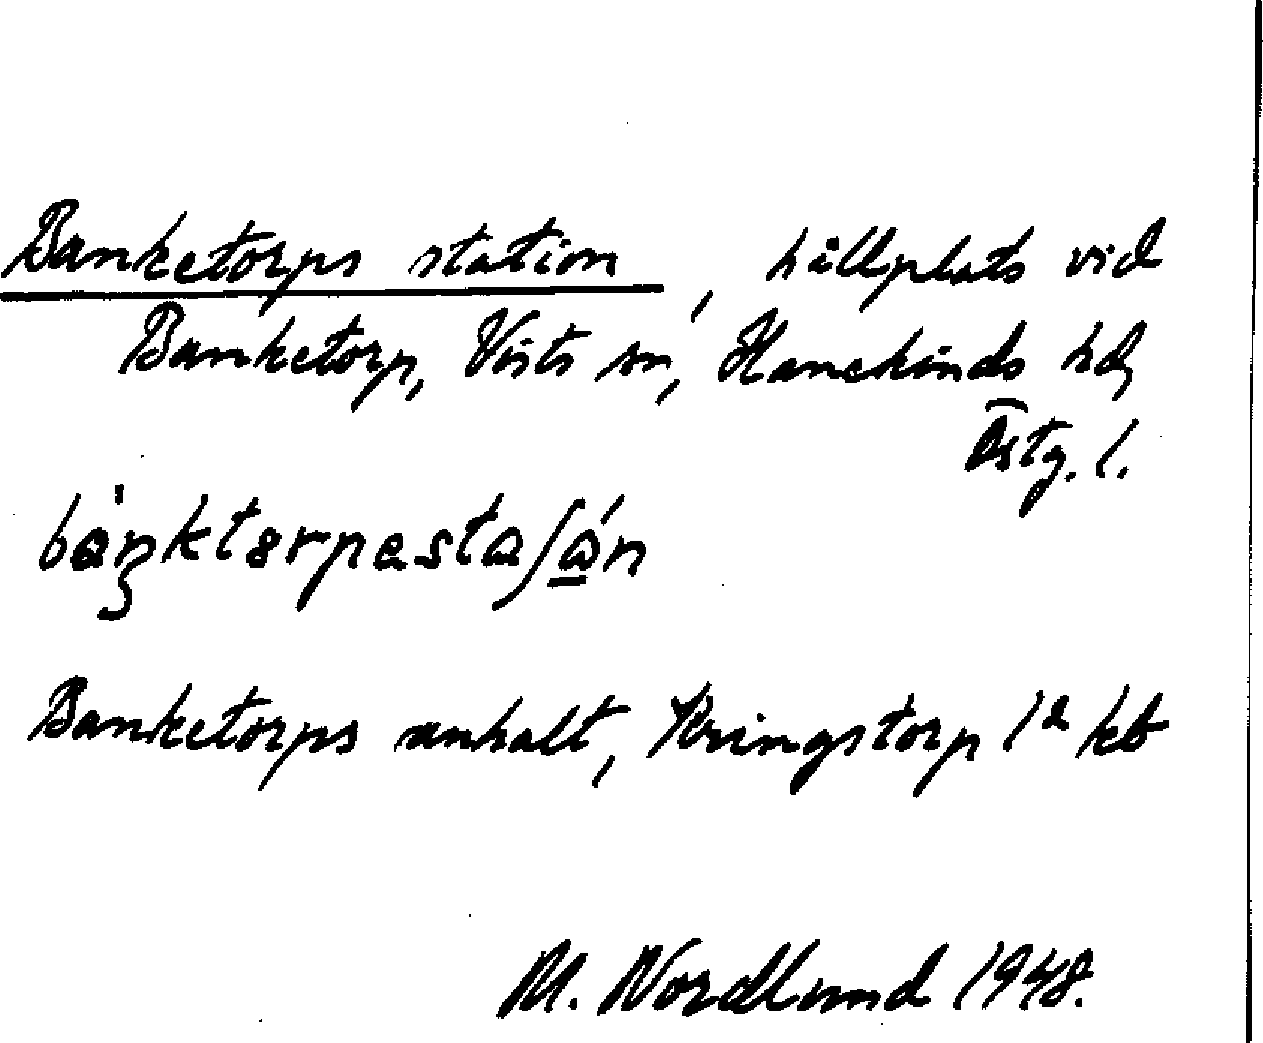 Banketorps station, hållplats vid
Banketorp, Vists sn, Hanekinds hd,
Östg. l.
bàŋktərpəstaʃá̲n
Banketorps anhalt, Kringstorp 1² kb
M. Nordlund 1948.